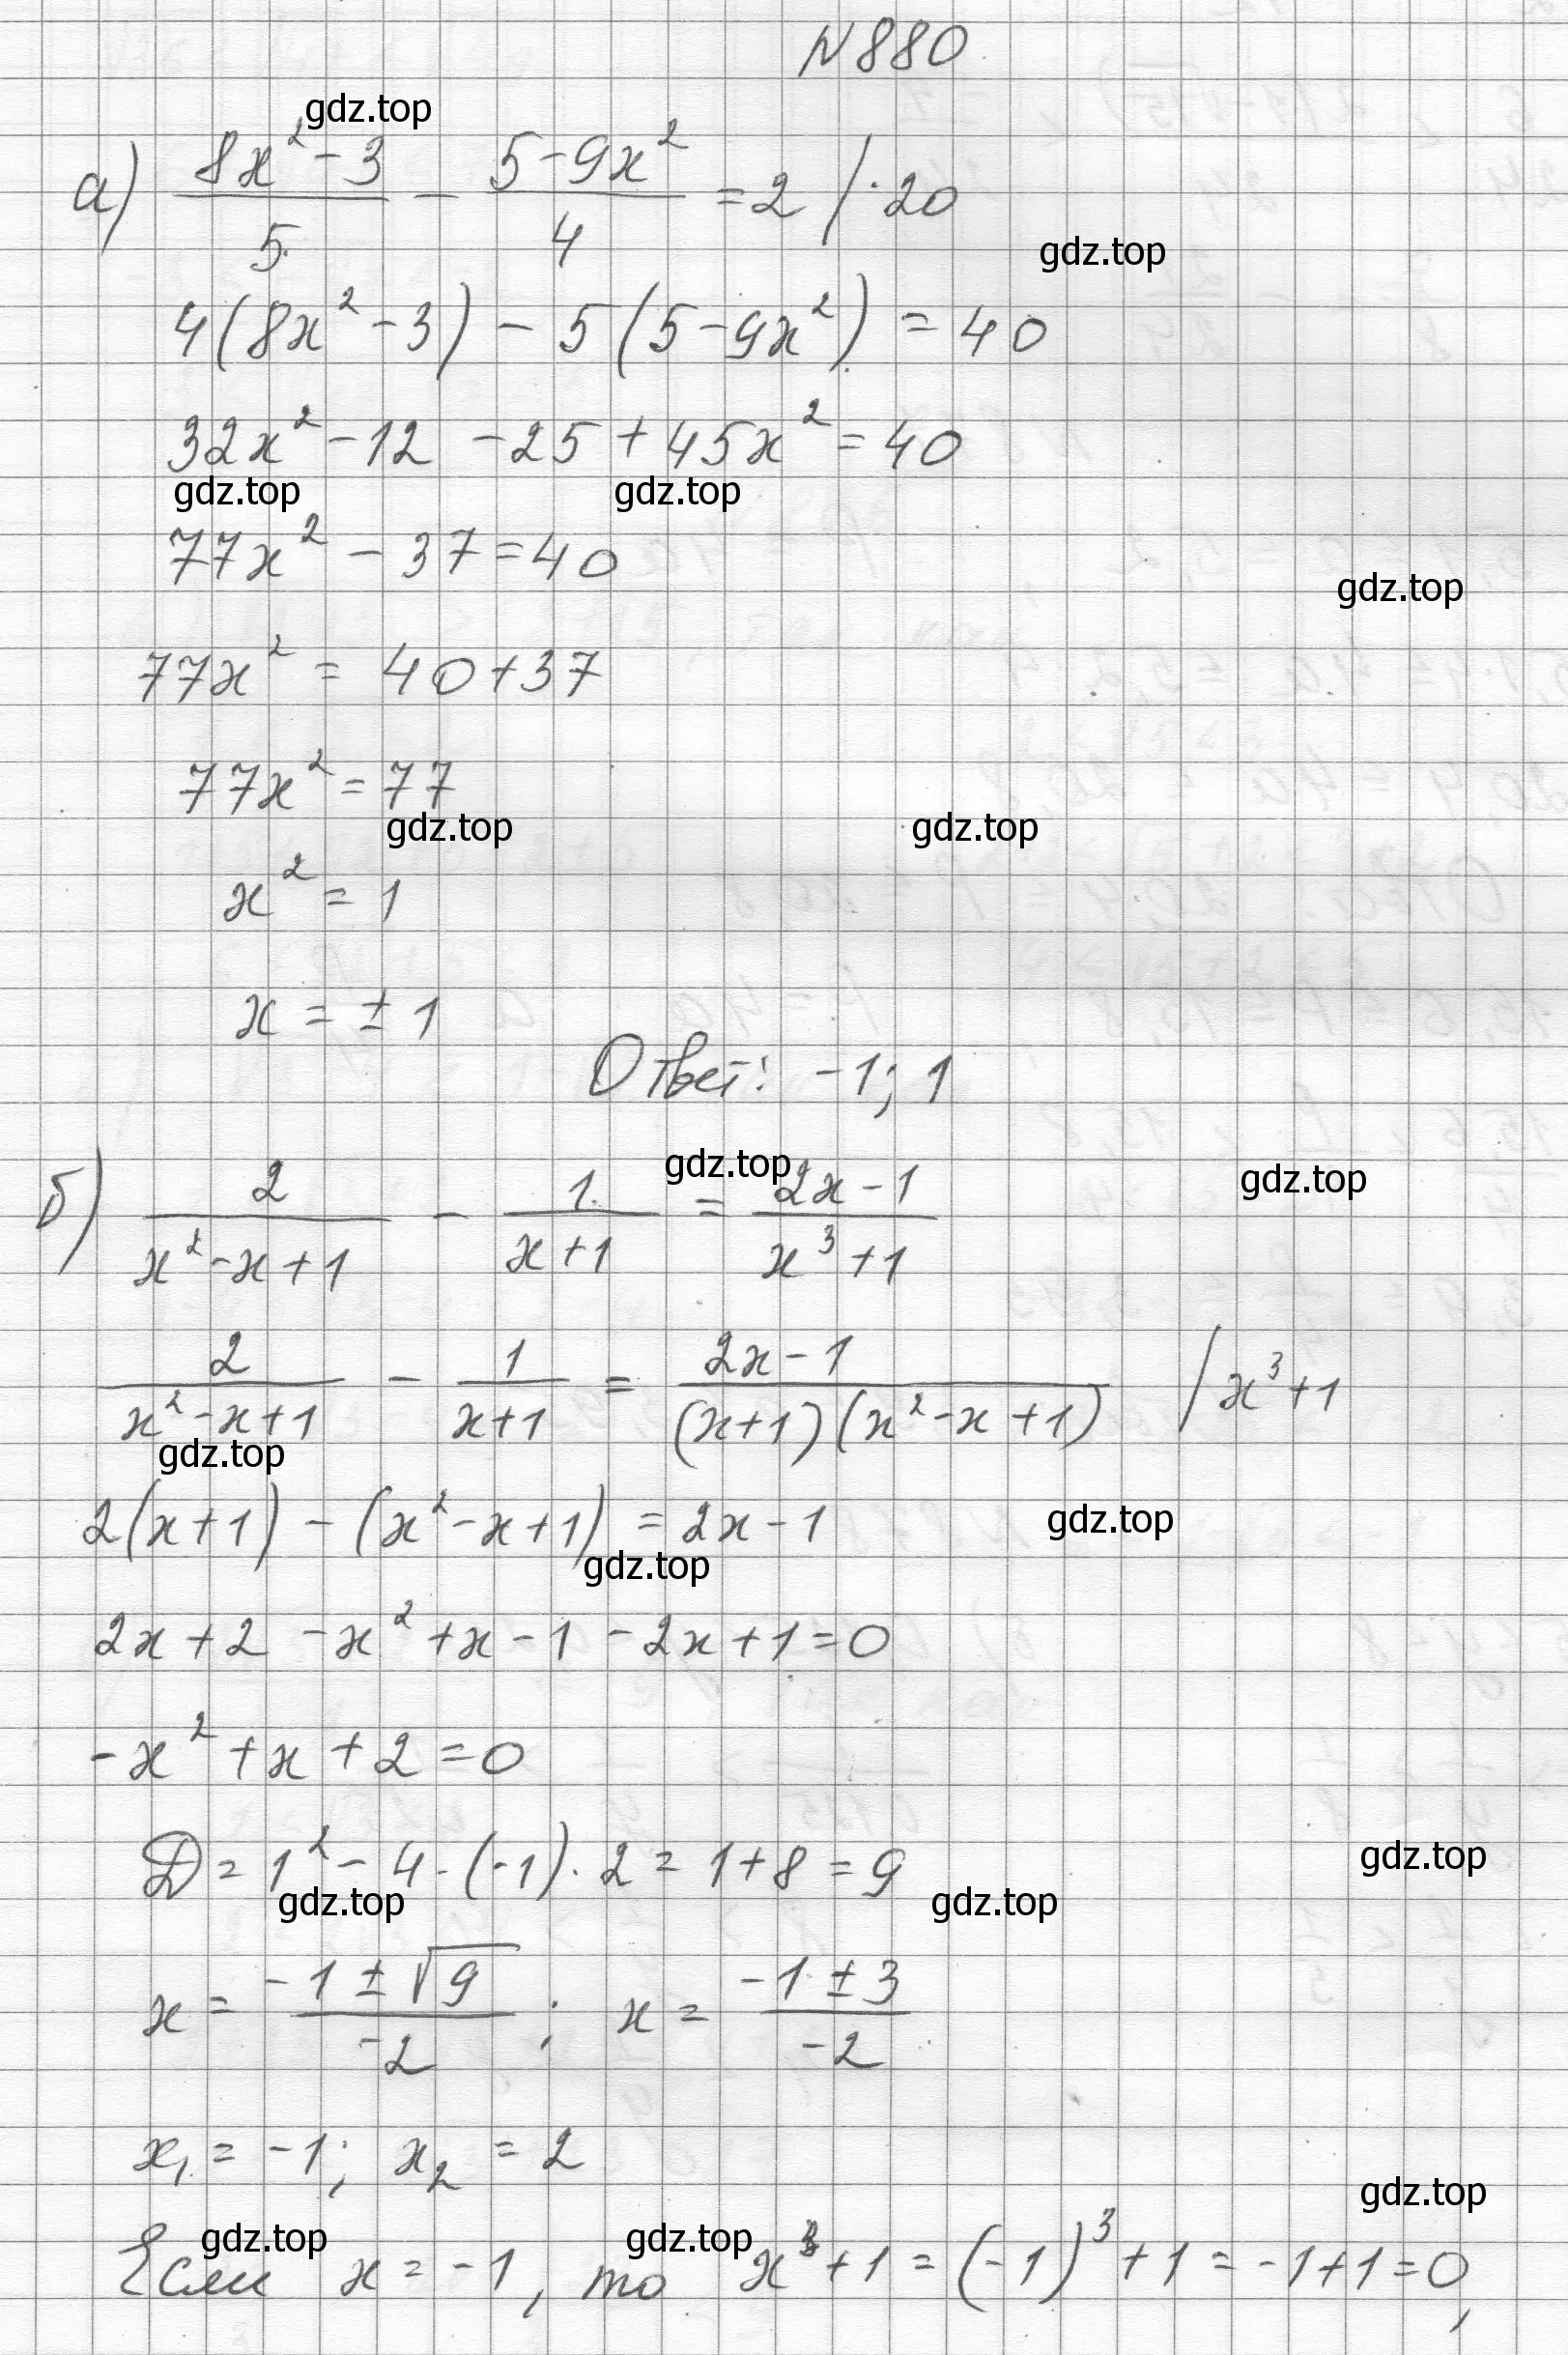 N880
gdz.top
а) (8x² - 3)/5 - (5 - 9x²)/4 = 2 / · 20
gdz.top
4(8x² - 3) - 5(5 - 9x²) = 40
32x² - 12 - 25 + 45x² = 40
gdz.top gdz.top
77x² - 37 = 40
gdz.top
77x² = 40 + 37
77x² = 77
gdz.top gdz.top
x² = 1
x = ± 1
Ответ: -1; 1
gdz.top gdz.top
б) 2/(x² - x + 1) - 1/(x + 1) = (2x - 1)/(x³ + 1)
2/(x² - x + 1) - 1/(x + 1) = (2x - 1)/((x + 1)(x² - x + 1)) / x³ + 1
gdz.top
2(x + 1) - (x² - x + 1) = 2x - 1
gdz.top
gdz.top
2x + 2 - x² + x - 1 - 2x + 1 = 0
-x² + x + 2 = 0
D = 1² - 4 · (-1) · 2 = 1 + 8 = 9
gdz.top
gdz.top gdz.top
x = (-1 ± √9)/(-2) ; x = (-1 ± 3)/(-2)
x₁ = -1; x₂ = 2
gdz.top
gdz.top gdz.top
Если x = -1, то x³ + 1 = (-1)³ + 1 = -1 + 1 = 0,